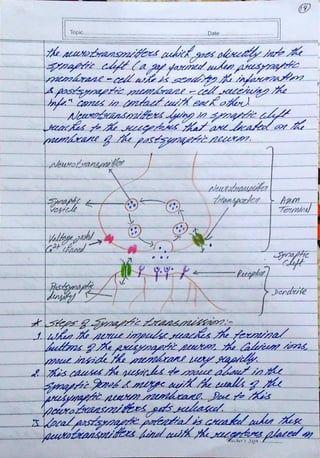 19
Topic
Date
the neurotransmitters which goes directly into the
synaptic cleft (a gap formed when presynaptic
membrane - cell who is sending the information
& postsynaptic membrane - cell receiving the
info" comes in contact with each other)
Neurotransmitters lying in synaptic cleft
reaches to the receptors that are located on the
membrane of the postsynaptic neuron.
Neurotransmitter
Neurotransmitter
transporter
Synaptic
vesicle
Axon
Terminal
Voltage gated
Ca2+ channel
Synaptic
cleft
Receptor
Postsynaptic
density
Dendrite
* Steps of Synaptic transmission:-
1. When the nerve impulse reaches the terminal
buttons of the presynaptic neuron, the calcium ions
move inside the membrane very rapidly.
2. This causes the vesicles to move about in the
synaptic knob & merge with the walls of the
presynaptic neuron membrane. Due to this
neurotransmitters gets released.
3. Local postsynaptic potential is created when these
neurotransmitters bind with the receptors placed on
Teacher's Sign